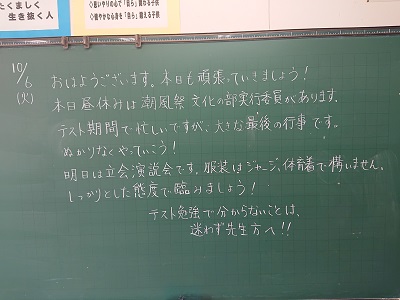 たくましく
生き抜く人
◇思いやりの心で「自ら」関わる子供
◇健やかな心身を「自ら」鍛える子供
10/6
(火)
おはようございます。本日も頑張っていきましょう!
本日昼休みは潮風祭文化の部実行委員があります。
テスト期間で忙しいですが、大きな最後の行事です。
ぬかりなくやっていこう!
明日は立会演説会です。服装はジャージ、体育着で構いません。
しっかりとした態度で臨みましょう!
テスト勉強で分からないことは、
迷わず先生方へ!!